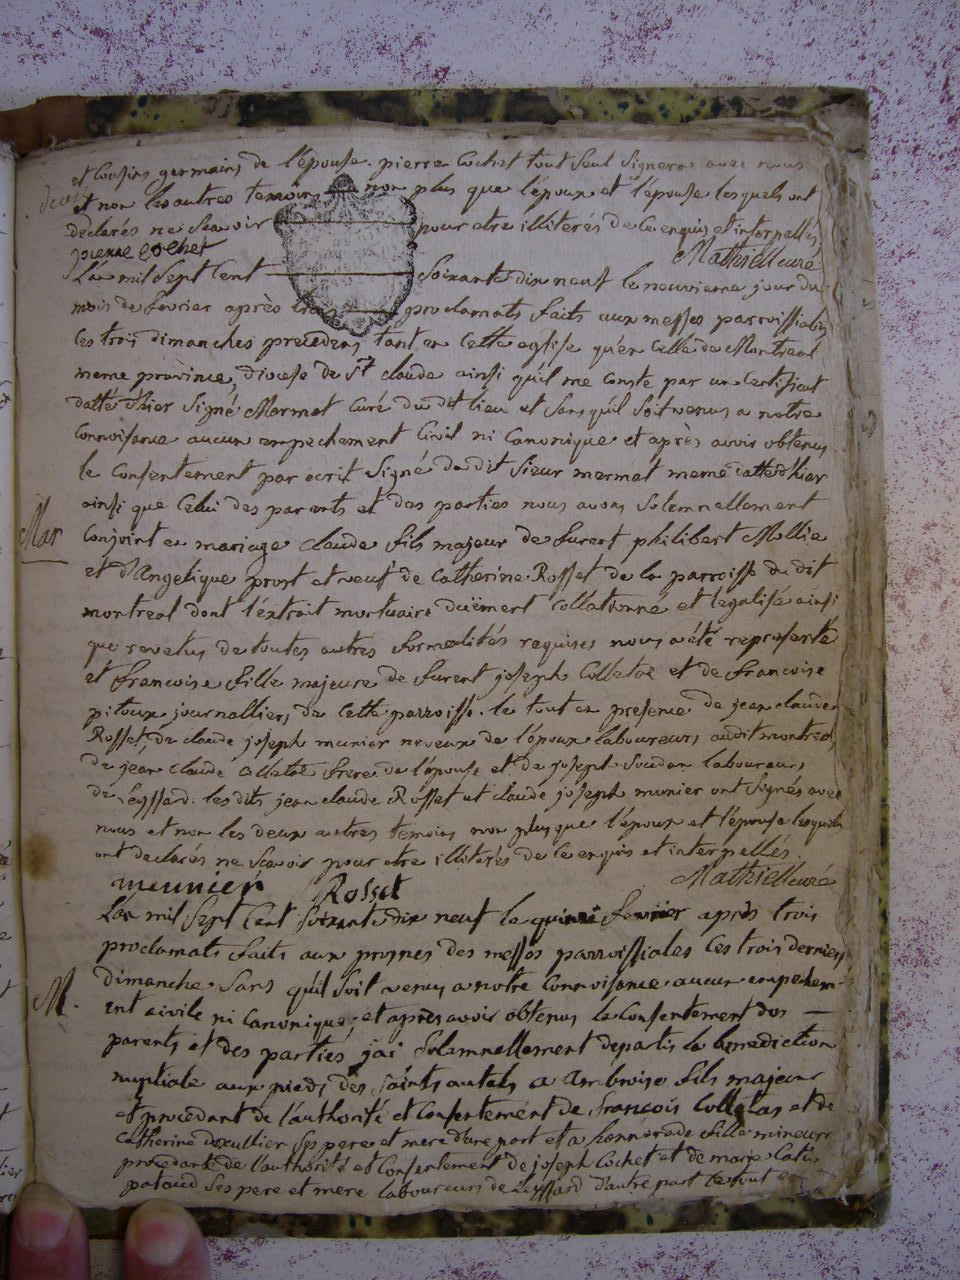 et Cousins germains de l'épouse. pierre Cochet tout seul signera avec nous
et non les autres temoins non plus que l'époux et l'épouse lesquels ont
declarés ne scavoir pour etre illiterés de ce enquis et interpellés
pierre cochet Mathieu curé
L'an mil sept cent soixante dix neuf le neuvieme jour du
mois de fevrier après trois proclamats faits aux messes parroissiales
ces trois dimanches precedens tant en cette eglise qu'en celle de Montreal
meme province, diocese de St claude ainsi qu'il me conste par un certificat
datté d'hier signé Mermet curé du dit lieu et sans qu'il soit venus a notre
connoisance aucun empechement Civil ni Canonique et après avoir obtenus
le consentement par ecrit signé du dit sieur mermet meme datte d'hier
ainsi que celui des parents et des parties nous avons solemnellement
Mar
conjoint en mariage claude fils majeur de furent philibert Mollie
et d'Angelique prost et veuf de Catherine Rosset de la parroisse du dit
montreal dont l'extrait mortuaire duëment collationné et legalisé ainsi
que revetus de toutes autres formalités requises nous a été representé
et francoise fille majeure de furent joseph Colletaz et de francoise
pitoux journalliers de cette parroisse. le tout en presence de jean claude
Rosset, de claude joseph munier neveux de l'époux laboureurs audit montreal
de jean claude frere de l'épouse et de joseph Soudan laboureurs
de Leyssard: lesdits jean claude Rosset et claude joseph munier ont signés avec
nous et non les deux autres temoins non plus que l'époux et l'épouse lesquels
ont declarés ne scavoir pour etre illiterés de ce enquis et interpellés.
meunier Rosset Mathieu curé
L'an mil sept cent soixante dix neuf le fevrier après trois
proclamats faits aux prosnes des messes parroissiales ces trois derniers
M.
dimanche sans qu'il soit venus a notre connoisance aucun empechem-
ent civile ni canonique, et après avoir obtenus le consentement des
parents et des parties j'ai solemnellement departis la benediction
nuptiale aux pieds des saints autels a Ambroise fils majeur
et procedant de l'authorité et consentement de francois Colletas et de
catherine ses pere et mere d'une part et a honnorade fille mineure
procedante de l'authorité et consentement de joseph Cochet et de marie
pataud ses pere et mere laboureurs de Leyssard d'autre part le tout